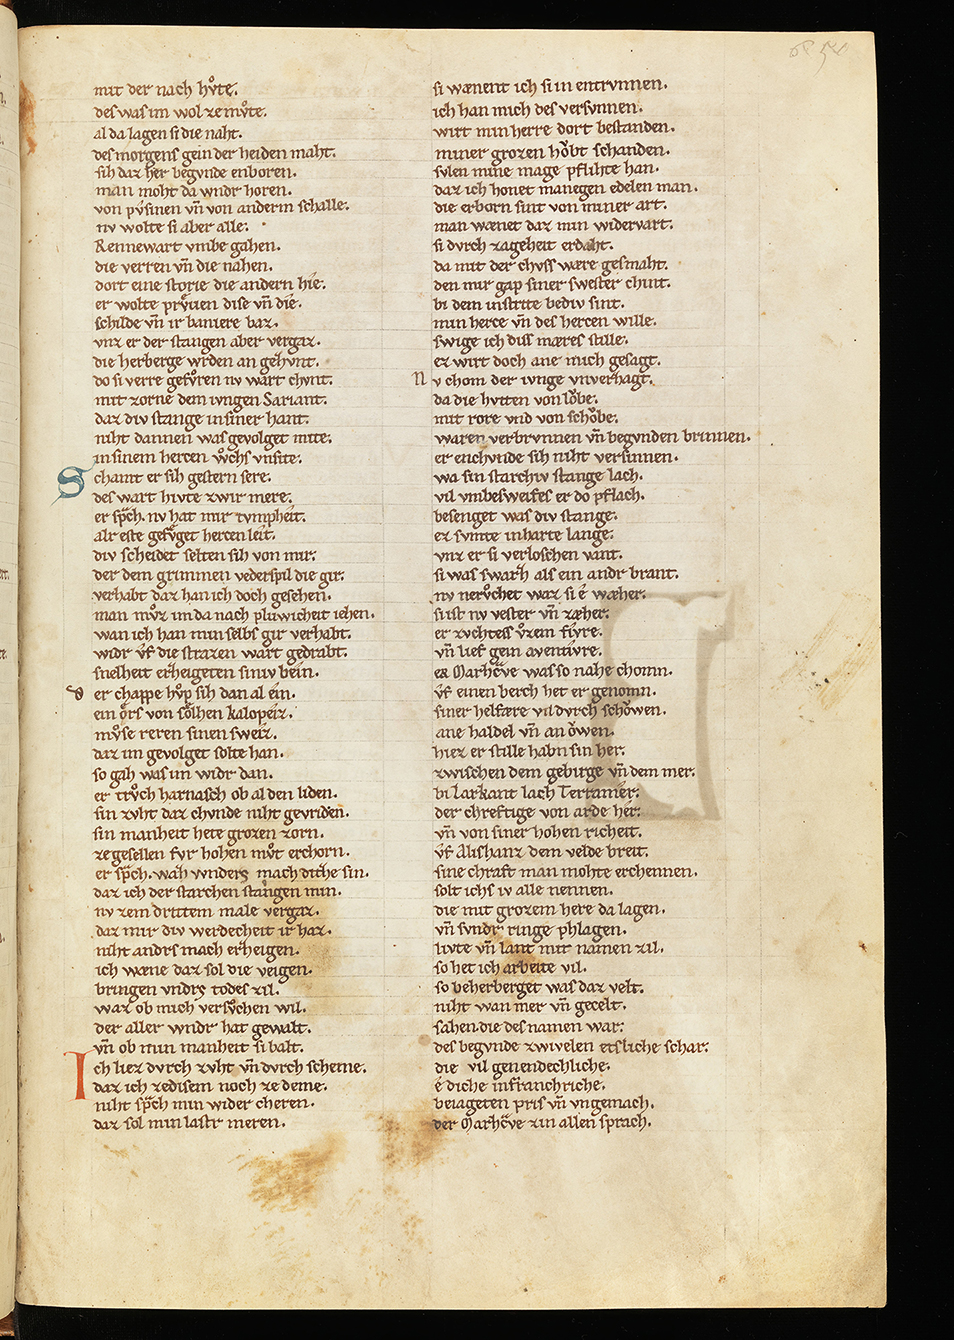 mit der nach hvͦte.
des was im wol ze mvͦte.
al da lagen si die naht.
des morgens gein der heiden maht.
sih daz her begvnde enboren.
man moht da wndr horen.
von pvsinen vn̄ von anderm schalle.
nv wolte si aber alle.
Rennewart vmbe gahen.
die verren vn̄ die nahen.
dort eine storie die andern hie.
er wolte prvͤuen dise vn̄ die.
schilde vn̄ ir baniere baz.
vnz er der stangen aber vergaz.
die herberge wrden an gehvnt.
do si verre gefvͦren nv wart chvnt.
mit zorne dem ivngen Sariant.
daz div stange in siner hant.
niht dannen was gevolget mite.
in sinem hercen wͦchs vnsite.
Schamt er sih gestern sere.
des wart hivte zwir mere.
er sp̄ch. nv hat mir tvmpheit.
alr este gefvͤget hercen leit.
div scheidet selten sih von mir.
der dem grimmen vederspil die gir.
verhabt daz han ich doch gesehen.
man mvͦz im da nach plvwicheit iehen.
wan ich han min selbs gir verhabt.
widr vͦf die strazen wart gedrabt.
snelheit erheigeten siniv bein.
der chappe hvͦp sih dan al ein.
ein oͤrs von soͤlhen kalopeiz.
mvͦse reren sinen sweiz.
daz im gevolget solte han.
so gah was im widr dan.
er trvͦch harnasch ob al den liden.
sin zvht daz chvnde niht gevriden.
sin manheit hete grozen zorn.
ze gesellen fvr hohen mvͦt erchorn.
er sp̄ch. wah wnders mach diche sin.
daz ich der starchen stangen min.
nv zem dritem male vergaz.
daz mir div werdecheit ir haz.
niht andrs mach erheigen.
ich wæne daz sol die veigen.
bringen vndrs todes zil.
waz ob mich versvͦchen wil.
der aller wndr hat gewalt.
vn̄ ob min manheit si balt.
Ich liez dvrch zvht vn̄ dvrch scheme.
daz ich ze disem noch ze deme.
niht sp̄ch min wider cheren.
daz sol min lastr meren.
si wænent ich si in entrvnnen.
ich han mich des versvnnen.
wirt min herre dort bestanden.
miner grozen hoͮbt schanden.
svlen mine mage pflihte han.
daz ich honet manegen edelen man.
die erborn sint von miner art.
man wænet daz min widervart.
si dvrch zageheit erdaht.
da mit der chvss wære gesmaht.
den mir gap siner swester chint.
bi dem instrite bediv sint.
min herce vn̄ des hercen wille.
swige ich diss mæres stille.
ez wirt doch ane mich gesagt.
Nv chom der ivnge vnverhagt.
da die hvtten von loͮbe.
mit rore vnd von schoͮbe.
waren verbrvnnen vn̄ begvnden brinnen.
er enchvnde sih niht versinnen.
wa sin starchiv stange lach.
vil vmbesweifes er do pflach.
besenget was div stange.
ez svmte in harte lange.
vnz er si verloschen vant.
si was swarh als ein andr brant.
nv nervͦchet waz si e wæher.
si ist nv vester vn̄ zæher.
er zvchtess vͦzem fivre.
vn̄ lief gein aventivre.
ez Marhcͤve was so nahe chomn.
vͦf einen berch het er genomn.
siner helfære vil dvrch schoͮwen.
ane haldel vn̄ an oͮwen.
hiez er stille habn sin her.
zwischen dem gebirge vn̄ dem mer.
bi larkant lach Terramer.
der chreftige von arde her.
vn̄ von siner hohen richeit.
vͦf Alishanz dem velde breit.
sine chraft man mohte erchennen.
solt ichs iv alle nennen.
die mit grozem here da lagen.
vn̄ svndr ringe phlagen.
livte vn̄ lant mit namen zil.
so het ich arbeite vil.
so beherberget was daz velt.
niht wan mer vn̄ gecelt.
sahen die des namen war.
des begvnde zwivelen etsliche schar.
die vil genendechliche.
e diche in franchriche.
beiageten pris vn̄ vngemach.
der Marhcͤve zin allen sprach.